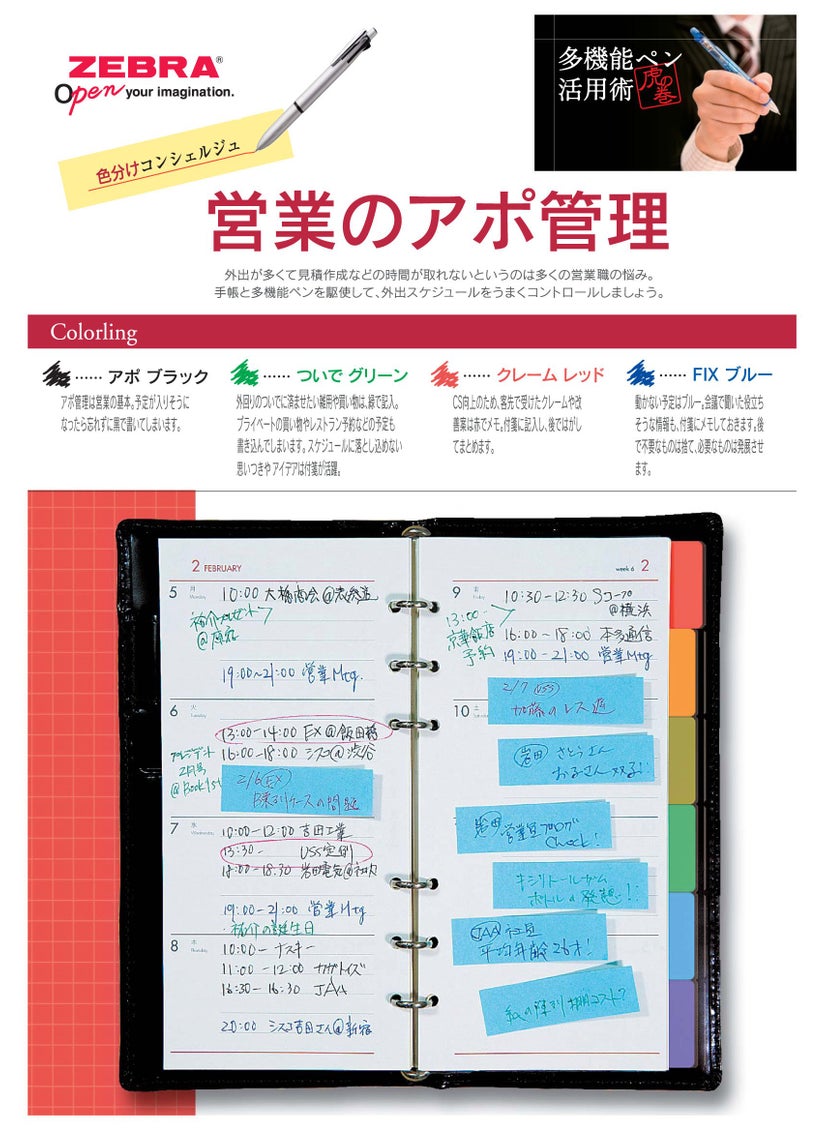 ZEBRA®
Open your imagination.
多機能ペン
活用術
虎の巻
色分けコンシェルジュ
営業のアポ管理
外出が多くて見積作成などの時間が取れないというのは多くの営業職の悩み。
手帳と多機能ペンを駆使して、外出スケジュールをうまくコントロールしましょう。
Colorling
…… アポ ブラック
アポ管理は営業の基本。予定が入りそうに
なったら忘れずに黒で書いてしまいます。
…… ついで グリーン
外回りのついでに済ませたい雑用や買い物は、緑で記入。
プライベートの買い物やレストラン予約などの予定も
書き込んでしまいます。スケジュールに落とし込めない
思いつきや アイデアは付箋が活躍。
…… クレーム レッド
CS向上のため、客先で受けたクレームや改
善案は赤でメモ。付箋に記入し、後ではがし
てまとめます。
…… FIX ブルー
動かない予定はブルー。会議で聞いた役立ち
そうな情報も、付箋にメモしておきます。後
で不要なものは捨て、必要なものは発展させ
ます。
2 FEBRUARY
5 月 Monday
10:00 大橋商会@表参道
裕介プレゼント
@原宿
19:00~21:00 営業Mtg.
6 火 Tuesday
13:00-14:00 EX@飯田橋
16:00-18:00 シスコ@渋谷
プレジデント
2月号
@Book1st
2/6 EX
陳列ケースの問題
7 水 Wednesday
10:00-12:00 吉田工業
13:30- USS定例
18:00-18:30 岩田電気@
19:00-21:00 営業Mtg
・裕介の誕生日
8 木 Thursday
10:00- ナスキー
11:00-12:00
16:30-16:30 JAA
20:00 シスコ吉田さん@新宿
week 6 2
9 金 Friday
10:30-12:30 Sコープ
@横浜
13:00-
京華飯店
予約
16:00~18:00 本多通信
19:00-21:00 営業Mtg
10 土 Saturday
2/7 USS
加藤のレス遅
岩田 さとうさん
お子さん双子!!
岩田 営業部ブログ
Check!
キシリトールガム
ボトルの発想!!
JAA 社員
平均年齢26才!
の陳列 棚コスト?